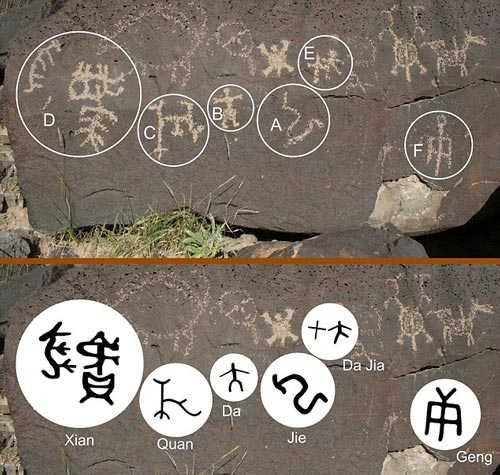 E
B
D
C
A
F
Da Jia
Da
Xian
Quan
Jie
Geng